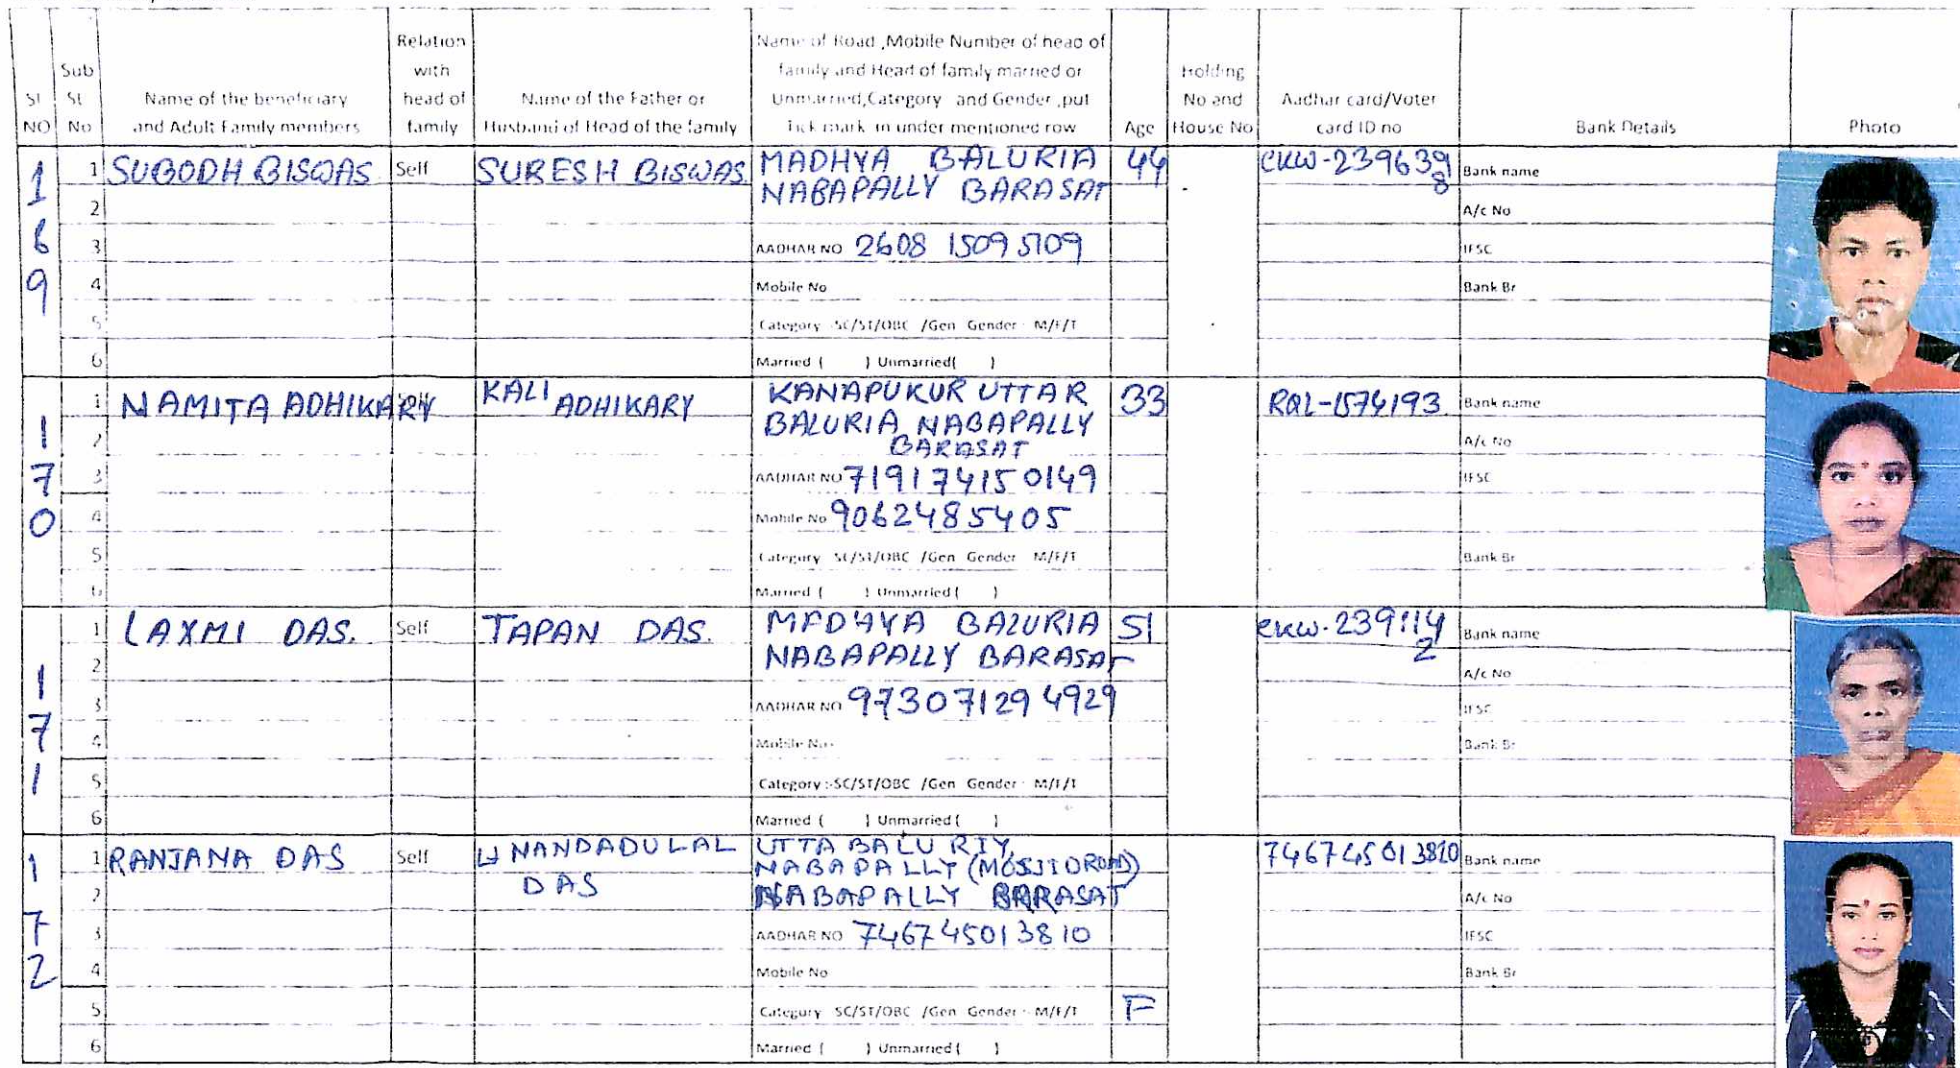 Sl NO
Sub Sl No
Name of the beneficiary and Adult Family members
Relation with head of family
Name of the Father or Husband of Head of the family
Name of Road ,Mobile Number of head of family and Head of family married or Unmarried,Category and Gender ,put Tick mark in under mentioned row
Age
Holding No and House No
Aadhar card/Voter card ID no
Bank Details
Photo
169
1 SUBODH BISWAS Self SURESH BISWAS MADHYA BALURIA 44 CKW-239639 Bank name
2 NABAPALLY BARASAT 8 A/c No
3 AADHAR NO 2608 1509 5109 IFSC
4 Mobile No Bank Br
5 Category SC/ST/OBC /Gen Gender M/F/T
6 Married ( ) Unmarried( )
170
1 NAMITA ADHIKARY KALI ADHIKARY KANAPUKUR UTTAR 33 RQL-1574193 Bank name
2 BALURIA NABAPALLY A/c No
BARASAT
3 AADHAR NO 7191 7415 0149 IFSC
4 Mobile No 9062485405
5 Category SC/ST/OBC /Gen Gender M/F/T Bank Br
6 Married ( ) Unmarried( )
171
1 LAXMI DAS. Self TAPAN DAS. MADHYA BALURIA 51 CKW-239114 Bank name
2 NABAPALLY BARASAT 2 A/c No
3 AADHAR NO 9730 7129 4929 IFSC
4 Mobile No Bank Br
5 Category:-SC/ST/OBC /Gen Gender M/F/T
6 Married ( ) Unmarried( )
172
1 RANJANA DAS Self NANDADULAL UTTA BALU RIY, 7467 4501 3810 Bank name
DAS NABAPALLY (MOSJID ROAD)
2 NABAPALLY BARASAT A/c No
3 AADHAR NO 7467 4501 3810 IFSC
4 Mobile No Bank Br
5 Category SC/ST/OBC /Gen Gender M/F/T F
6 Married ( ) Unmarried( )